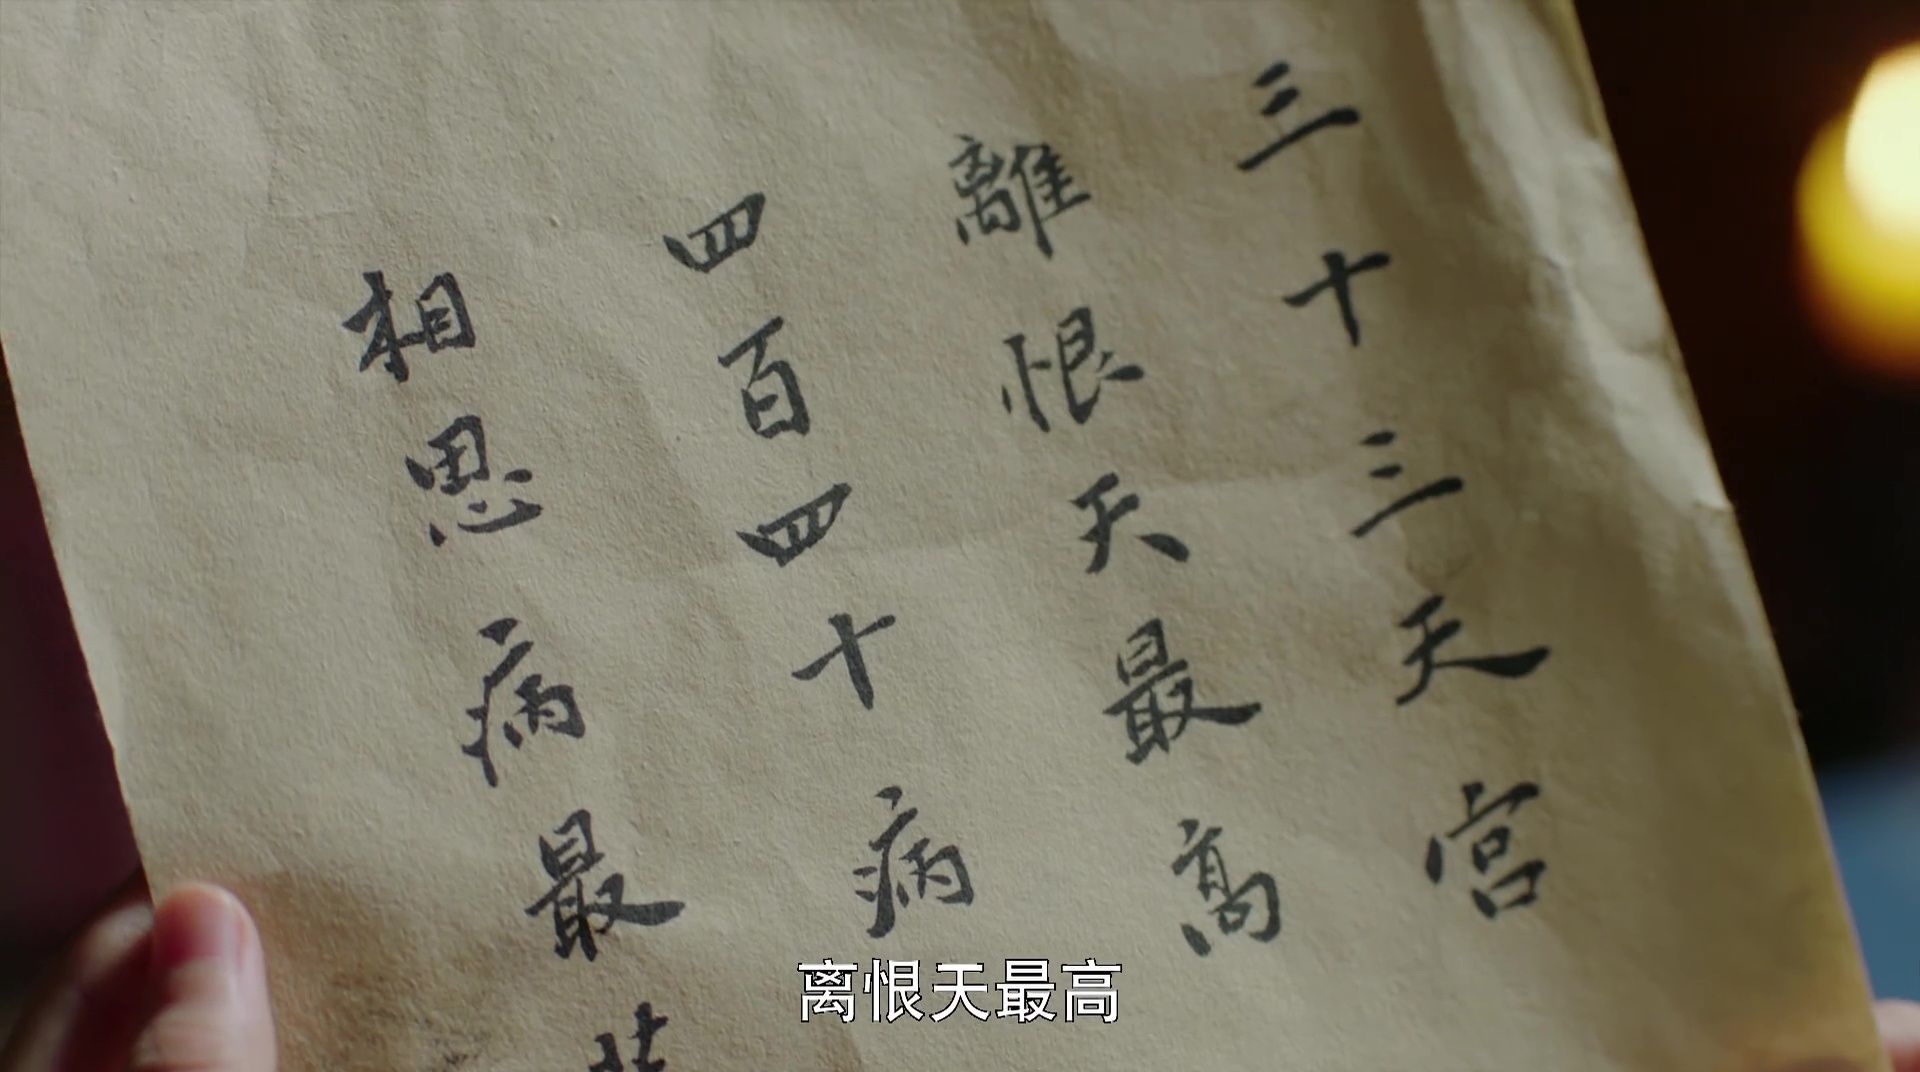 三十三天宮
離恨天最高
四百四十病
相思病最
离恨天最高